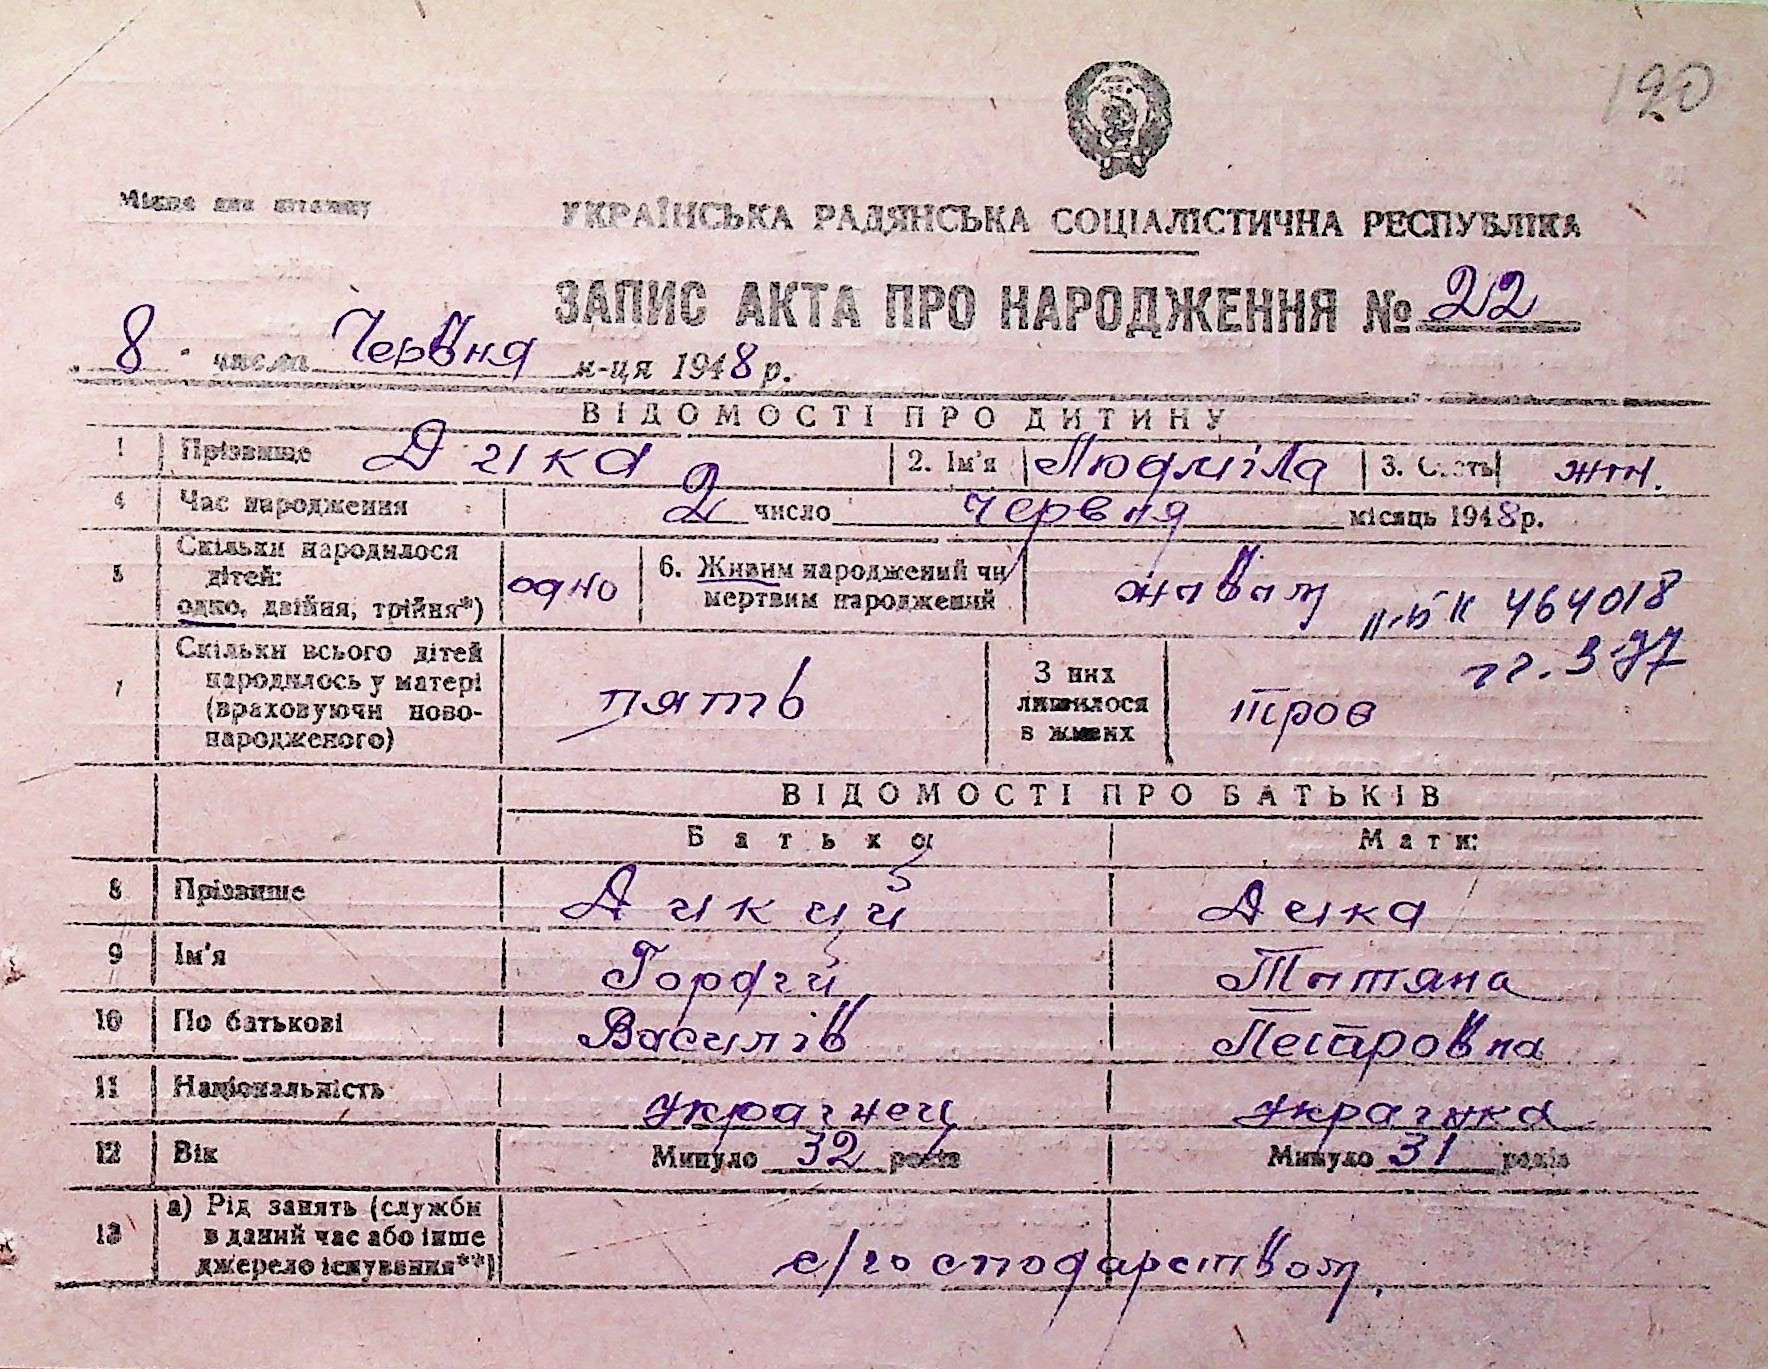 120
Місце для штампу
УКРАЇНСЬКА РАДЯНСЬКА СОЦІАЛІСТИЧНА РЕСПУБЛІКА
ЗАПИС АКТА ПРО НАРОДЖЕННЯ № 22
8 числа Червня м-ця 1948 р.
ВІДОМОСТІ ПРО ДИТИНУ
1 Прізвище Дика 2. Ім'я Людміла 3. Стать жін.
4 Час народження 2 число червня місяць 1948 р.
5 Скільки народилося дітей: одно, двійня, трійня*) одно 6. Живим народжений чи мертвим народжений живим
ІІ-БК 464018
7 Скільки всього дітей народилось у матері (враховуючи новонародженого) пять З них лишилося в живих троє
ВІДОМОСТІ ПРО БАТЬКІВ
Батька Мати:
8 Прізвище Дикий Дика
9 Ім'я Гордій Титяна
10 По батькові Василів Петровна
11 Національність українец українка
12 Вік Минуло 32 років Минуло 31 років
13 а) Рід занять (служби в даний час або інше джерело існування**) с/господарством